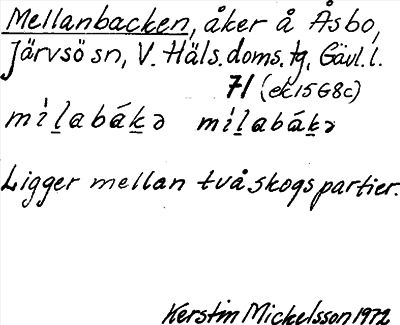 Mellanbacken, åker å Åsbo,
Järvsö sn, V. Häls. doms. tg, Gävl. l.
71 (ek 15 G8c)
mìl̲abák̲ə mìl̲abák̲ə
Ligger mellan två skogspartier.
Kerstin Mickelsson 1972